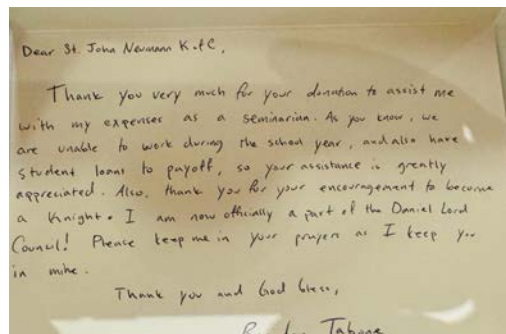 Dear St. John Neumann K of C,
Thank you very much for your donation to assist me
with my expenses as a seminarian. As you know, we
are unable to work during the school year, and also have
student loans to payoff, so your assistance is greatly
appreciated. Also, thank you for your encouragement to become
a Knight. I am now officially a part of the Daniel Lord
Council! Please keep me in your prayers as I keep you
in mine.
Thank you and God bless,
Tabone